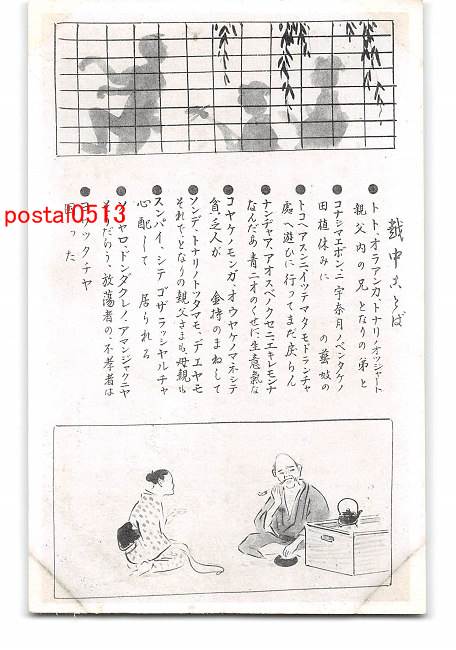 越中ことば
トト、オラアンカ、トナリノオッジャート
親父 内の兄 となりの弟と
コナシマエボンニ 宇奈月ノベンタケノ
田植休みに の藝妓の
トコヘアスンニイッテマタモドランチャ
處へ遊びに行ってまだ戻らん
ナンヂャア、アオスベクセニエキレモンナ
なんだあ 青二才のくせに生意氣な
コヤケノモンガ、オウヤケノマネシテ
貧乏人が 金持のまねして
ソンデ、トナリノトッタマモ、デエヤモ
それでとなりの親父さまも、母親も
スンパイ、シテ ゴザラッシャルチャ
心配して 居られる
ャロ、ドンダクレノ、アマンジャクニヤ
だらう、放蕩者の、不孝者は
ッタチヤ
った
posta0513